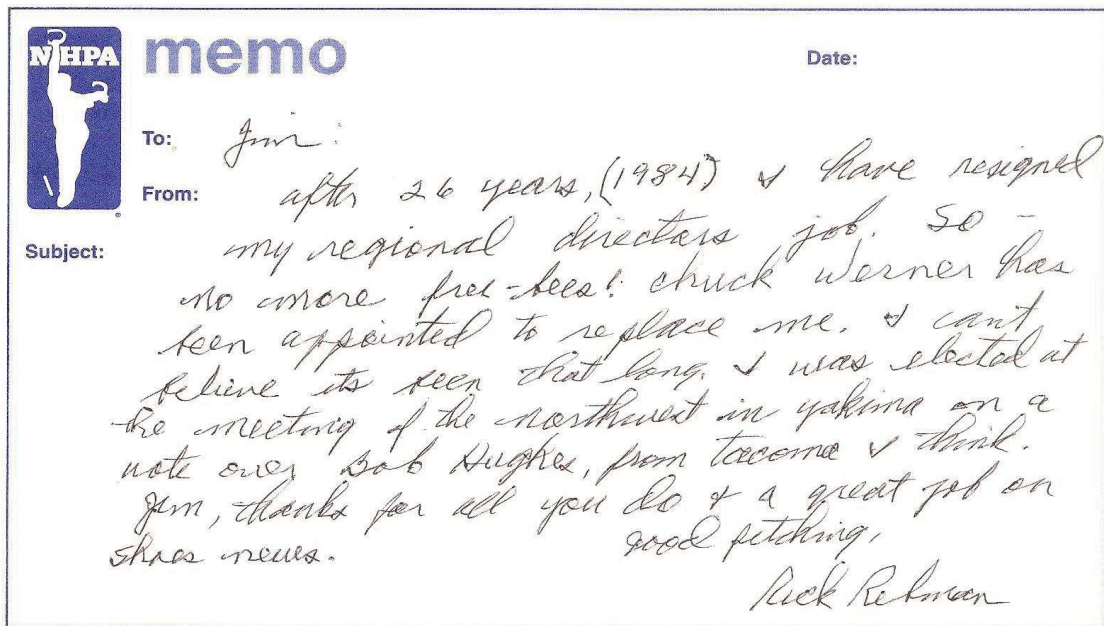 NHPA memo
Date:
To: Jim:
From: after 26 years, (1984) I have resigned
Subject: my regional directors job. So -
no more free-bees! chuck werner has
been appointed to replace me. I cant
believe its been that long. I was elected at
the meeting of the northwest in yakima on a
vote over Bob Hughes, from tacoma I think.
Jim, thanks for all you do & a great job on
shoes news. good pitching,
Rick